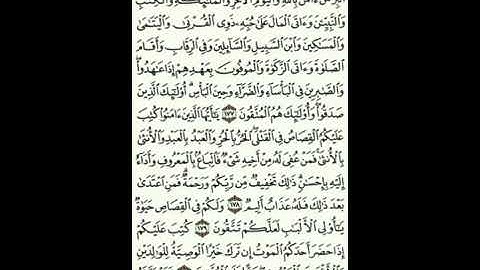 ٱلۡبِرَّ مَنۡ ءَامَنَ بِٱللَّهِ وَٱلۡيَوۡمِ ٱلۡأٓخِرِ وَٱلۡمَلَٰٓئِكَةِ وَٱلۡكِتَٰبِ
وَٱلنَّبِيِّـۧنَ وَءَاتَى ٱلۡمَالَ عَلَىٰ حُبِّهِۦ ذَوِي ٱلۡقُرۡبَىٰ وَٱلۡيَتَٰمَىٰ
وَٱلۡمَسَٰكِينَ وَٱبۡنَ ٱلسَّبِيلِ وَٱلسَّآئِلِينَ وَفِي ٱلرِّقَابِ وَأَقَامَ
ٱلصَّلَوٰةَ وَءَاتَى ٱلزَّكَوٰةَ وَٱلۡمُوفُونَ بِعَهۡدِهِمۡ إِذَا عَٰهَدُواْۖ
وَٱلصَّٰبِرِينَ فِي ٱلۡبَأۡسَآءِ وَٱلضَّرَّآءِ وَحِينَ ٱلۡبَأۡسِۗ أُوْلَٰٓئِكَ ٱلَّذِينَ
صَدَقُواْۖ وَأُوْلَٰٓئِكَ هُمُ ٱلۡمُتَّقُونَ ١٧٧ يَٰٓأَيُّهَا ٱلَّذِينَ ءَامَنُواْ كُتِبَ
عَلَيۡكُمُ ٱلۡقِصَاصُ فِي ٱلۡقَتۡلَىۖ ٱلۡحُرُّ بِٱلۡحُرِّ وَٱلۡعَبۡدُ بِٱلۡعَبۡدِ وَٱلۡأُنثَىٰ
بِٱلۡأُنثَىٰۚ فَمَنۡ عُفِيَ لَهُۥ مِنۡ أَخِيهِ شَيۡءٞ فَٱتِّبَاعُۢ بِٱلۡمَعۡرُوفِ وَأَدَآءٌ
إِلَيۡهِ بِإِحۡسَٰنٖۗ ذَٰلِكَ تَخۡفِيفٞ مِّن رَّبِّكُمۡ وَرَحۡمَةٞۗ فَمَنِ ٱعۡتَدَىٰ
بَعۡدَ ذَٰلِكَ فَلَهُۥ عَذَابٌ أَلِيمٞ ١٧٨ وَلَكُمۡ فِي ٱلۡقِصَاصِ حَيَوٰةٞ
يَٰٓأُوْلِي ٱلۡأَلۡبَٰبِ لَعَلَّكُمۡ تَتَّقُونَ ١٧٩ كُتِبَ عَلَيۡكُمۡ
إِذَا حَضَرَ أَحَدَكُمُ ٱلۡمَوۡتُ إِن تَرَكَ خَيۡرًا ٱلۡوَصِيَّةُ لِلۡوَٰلِدَيۡنِ